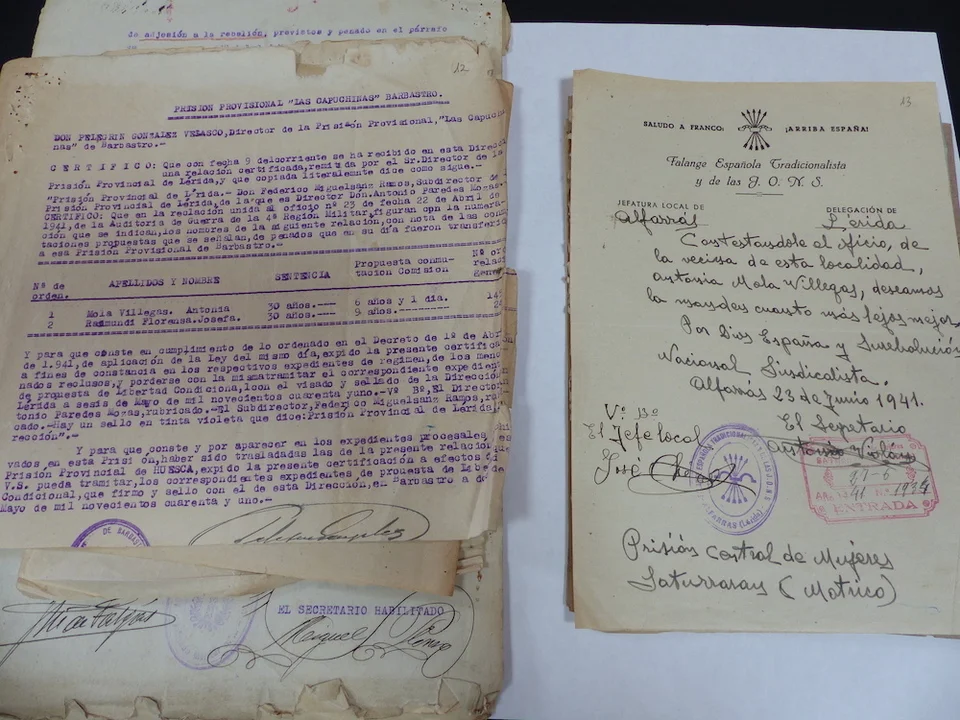 de adhesión a la rebelión, previstos y penado en el párrafo
12
PRISION PROVISIONAL "LAS CAPUCHINAS" BARBASTRO.
DON PELEGRIN GONZALEZ VELASCO, Director de la Prisión Provisional, "Las Capuchi
nas" de Barbastro.-
C E R T I F I C O: Que con fecha 9 delcorriente se ha recibido en esta Direcc
una relación certificada, remitida por el Sr. Director de la
Prisión Provincial de Lérida, y que copiada literalmente dice como sigue.-
"Prisión Provincial de Lérida.- Don Federico Miguelsanz Ramos, Subdirector de
Prisión Provincial de Lérida, de la que es Director Don Antonio Paredes Mozas.
CERTIFICO: Que en la realación unida al oficio nº 23 de fecha 22 de Abril de
1941, de la Auditoria de Guerra de la 4ª Región Militar, figuran con la numera-
ción que se indican, los nombres de la siguiente relación, con nota de las conmu
taciones propuestas que se señalan, de penados que en su día fueron transferid
a esa Prisión Provisional de Barbastro.-
Nº de orden. APELLIDOS Y NOMBRE SENTENCIA Propuesta conmu- tación Comisión Nº or relac gene
1 Mola Villegas. Antonia 30 años.---- 6 años y 1 dia. 14
2 Raimundi Florensa. Josefa. 30 años.---- 9 años.
Y para que conste en cumplimiento de lo ordenado en el Decreto de 1º de Abri
de 1.941, de aplicación de la Ley del mismo día, expido la presente certifica
a fines de constancia en los respectivos expedientes de régimen, de los menc
nados reclusos, y porderse con la mismatramitar el correspondiente expedien
de propuesta de Libertad Condicional, con el visado y sellado de la Dirección
Lérida a seis de Mayo de mil novecientos cuarenta yuno.-Vº Bº. El Director
tonio Paredes Mozas, rubricado.-El Subdirector, Federico Miguelsanz Ramos, ru
cado.-Hay un sello en tinta violeta que dice: Prisión Provincial de Lérida.
rección".-
Y para que conste y por aparecer en los expedientes procesales,
vados, en esta Prisión, haber sido trasladadas las de la presente relación
Prisión Provincial de HUESCA, expido la presente certificación a efectos
V.S. pueda tramitar, los correspondientes expedientes de propuesta de Libe
Condicional, que firmo y sello con el de esta Dirección, en Barbastro a
Mayo de mil novecientos cuarenta y uno.-
DE BARBAS
EL SECRETARIO HABILITADO
Miguel
13
SALUDO A FRANCO: ¡ARRIBA ESPAÑA!
Falange Española Tradicionalista
y de las J. O. N. S.
JEFATURA LOCAL DE DELEGACIÓN DE
Alfarrás Lérida
Contestandole al oficio, de
la vecina de esta localidad,
Antonia Mola Villegas, deseamos
la mandes cuanto más lejos mejor
Por Dios España y Surevolución
Nacional Sindicalista.
Alfarrás 23 de Junio 1941.
Vº Bº El Sepetario
El Jefe local
José
ALFARRAS (Lérida)
Nº 1934
ENTRADA
Prisión Central de Mujeres
Saturraran (Motrico)